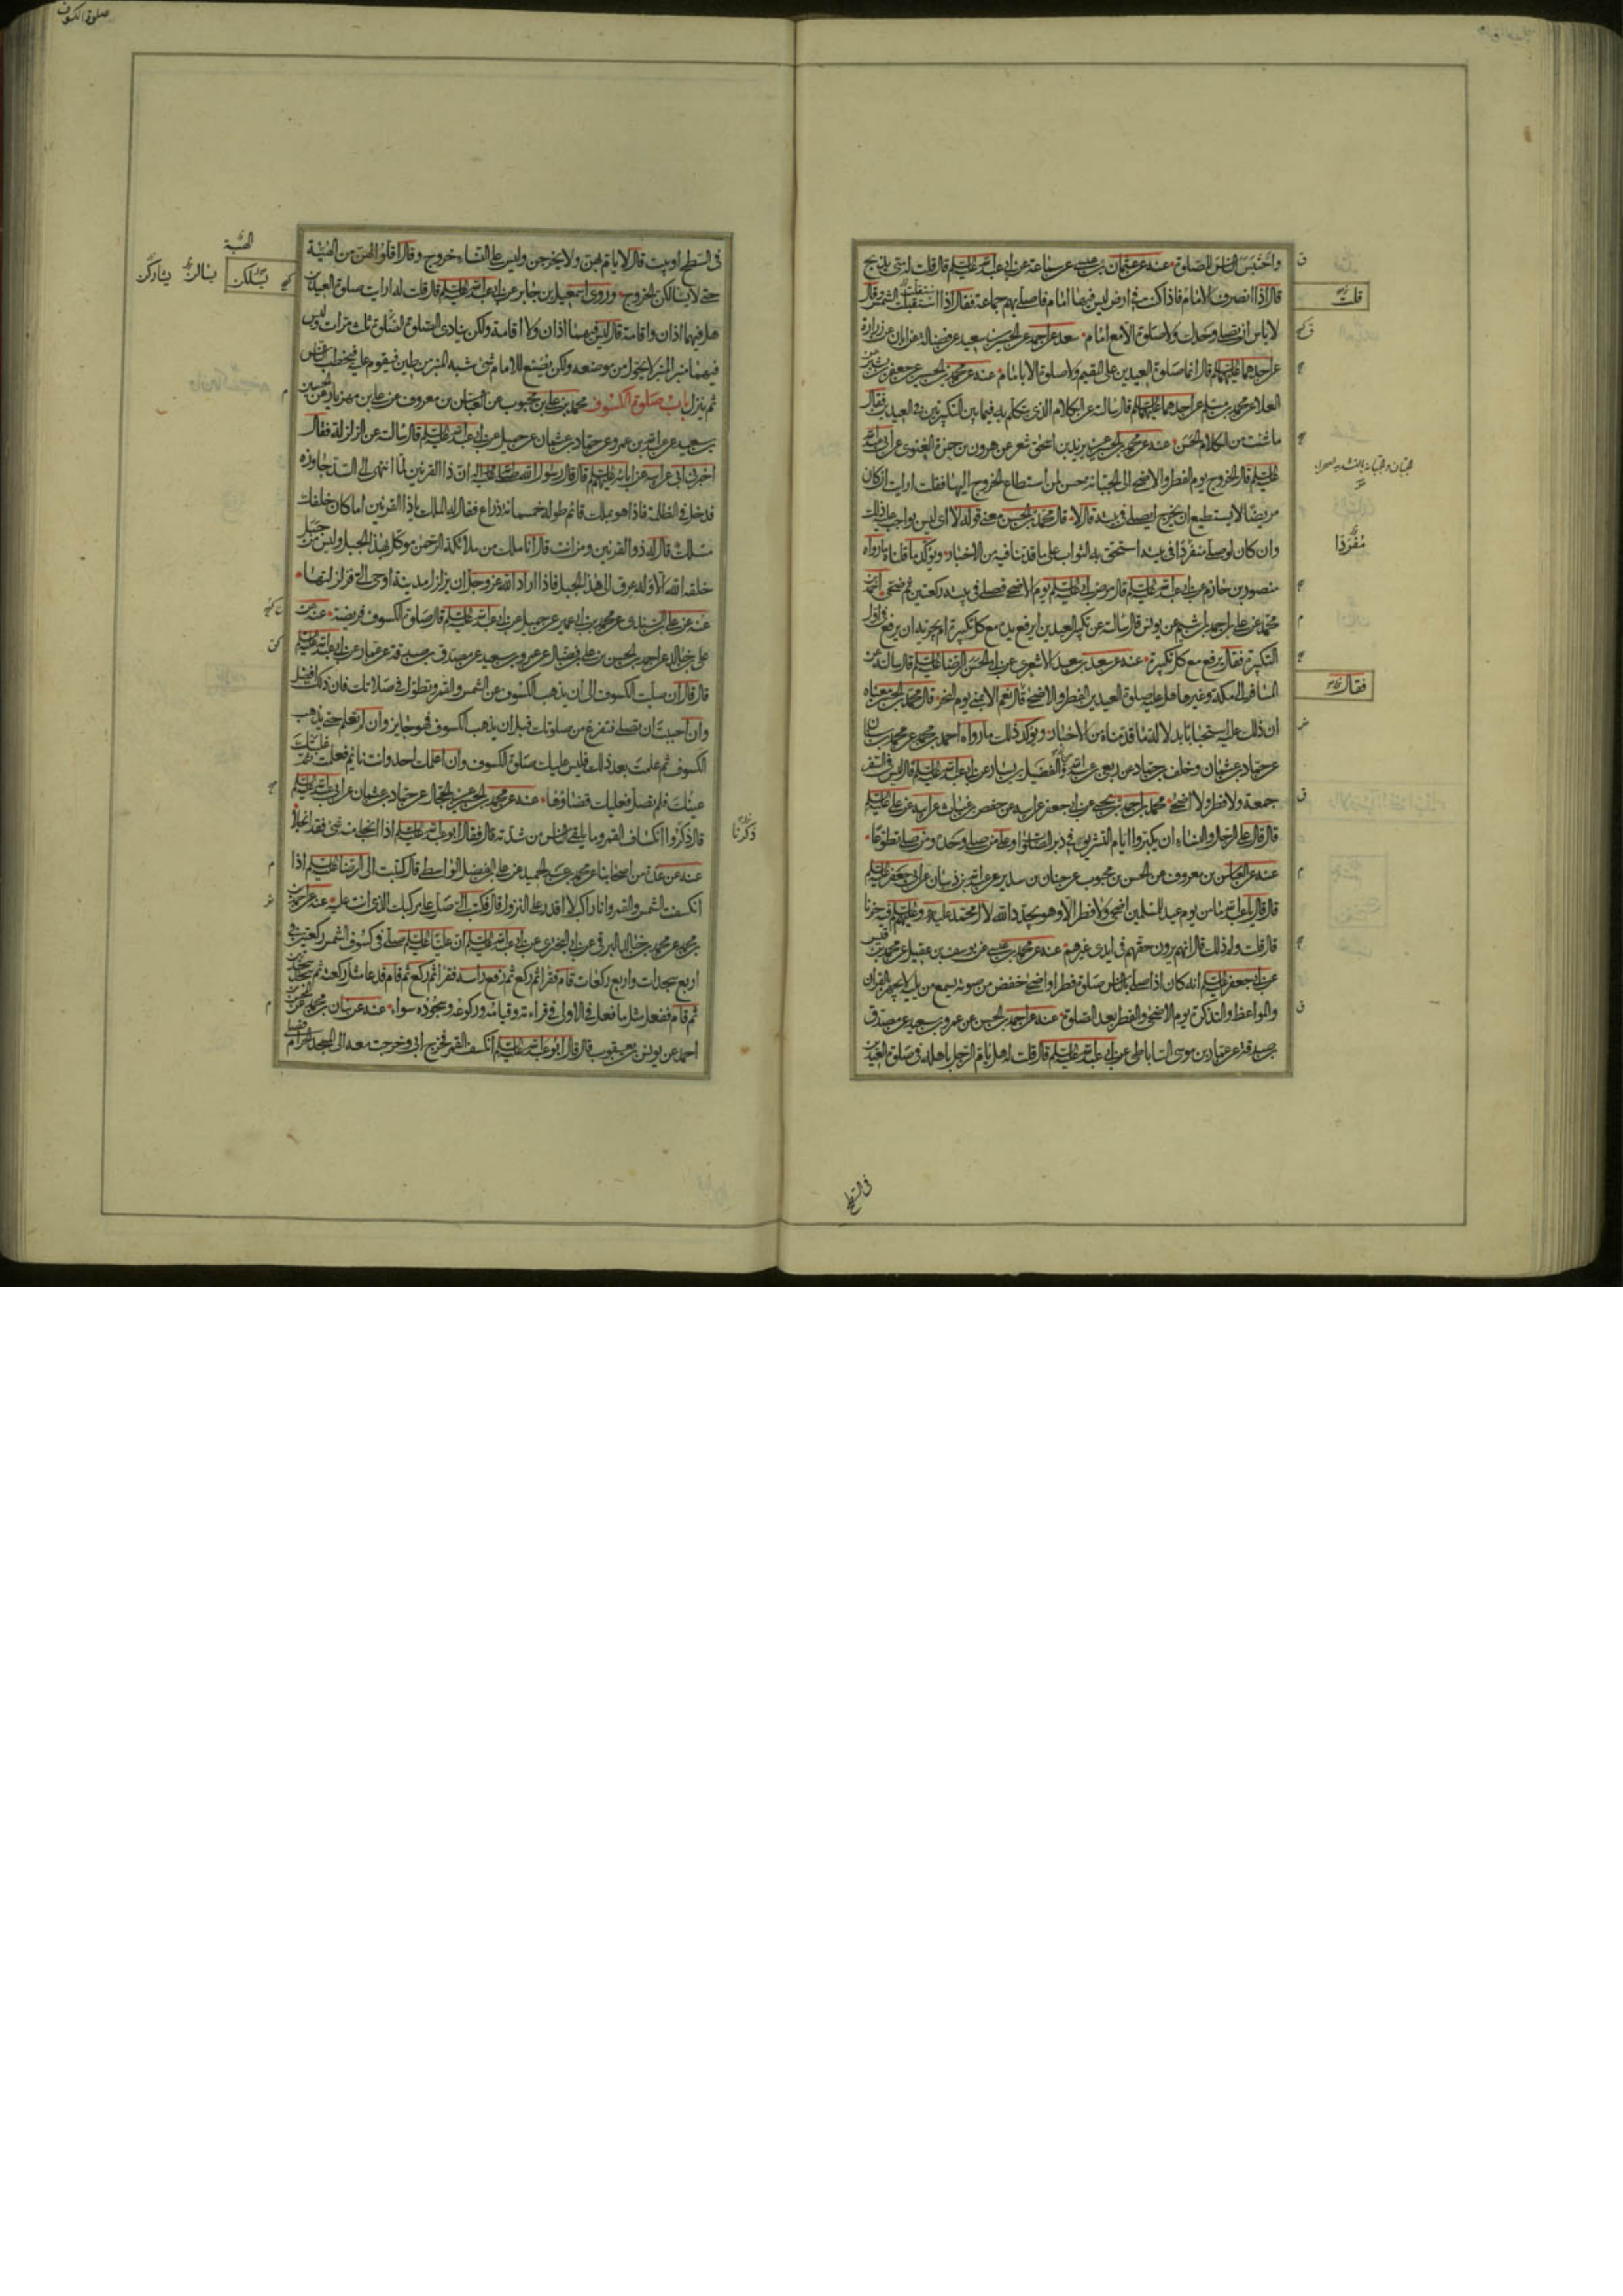 واحتبس الناس للصلوة عنه عن عثمان بن عيسى عن سماعة عن ابي عبد الله عليه السلم قال قلت له متى يذبح
قال اذا انصرف الامام قلت فاذا كنت في ارض ليس فيها امام فاصلي بهم جماعة فقال اذا استقلت الشمس وقال
لا باس ان تصلي وحدك ولا صلوة الا مع امام سعد عن احمد عن الحسين بن سعيد عن فضالة عن ابان عن زرارة
عن احدهما عليهما السلم قال انما صلوة العيدين على المقيم ولا صلوة الا بامام عنه عن محمد بن الحسين عن جعفر بن بشير عن
العلا عن محمد بن مسلم عن احدهما عليهما السلم قال سالته عن الكلام الذي يتكلم به فيما بين التكبيرتين في العيدين فقال
ما شئت من الكلام الحسن عنه عن محمد بن الحسين عن يزيد بن اسحق شعر عن هرون بن حمزة الغنوي عن ابي عبد الله
عليه السلم قال الخروج يوم الفطر والاضحى الى الجبانة حسن لمن استطاع الخروج اليها فقلت ارايت ان كان
مريضا لا يستطيع ان يخرج ايصلي في بيته قال لا قال محمد بن الحسن معنى قوله لا اي ليس بواجب عليه ذلك
وان كان لو صلى منفردا في بيته استحق به الثواب على ما قدمنا فيه من الاخبار ويؤكد ما قلناه ما رواه
منصور بن حازم عن ابي عبد الله عليه السلم قال مرض ابي عليه السلم يوم الاضحى فصلى في بيته ركعتين ثم ضحى احمد بن
محمد عن علي بن احمد بن اشيم عن يونس قال سالته عن تكبير العيدين ايرفع يده مع كل تكبيرة ام يجزيه ان يرفع في اول
التكبيرة فقال يرفع مع كل تكبيرة عنه عن سعد بن سعد الاشعري عن ابي الحسن الرضا عليه السلم قال سالته عن
المسافر الى مكة وغيرها هل عليه صلوة العيدين الفطر والاضحى قال نعم الا بمنى يوم النحر قال محمد بن الحسن معناه
ان ذلك عليه استحبابا بدلالة ما قدمناه من الاخبار ويؤكد ذلك ما رواه احمد بن محمد عن محمد بن سنان
عن حماد بن عثمان وخلف بن حماد عن ربعي بن عبد الله والفضيل بن يسار عن ابي عبد الله عليه السلم قال ليس في السفر
جمعة ولا فطر ولا اضحى محمد بن احمد بن يحيى عن ابي جعفر عن ابيه عن حفص بن غياث عن ابيه عن علي عليه السلم
قال قال على الرجال والنساء ان يكبروا ايام التشريق في دبر الصلوات وعلى من صلى وحده ومن صلى تطوعا
عنه عن العباس بن معروف عن الحسن بن محبوب عن حنان بن سدير عن عبد الله بن ذبيان عن ابي جعفر عليه السلم
قال قال يا عبد الله ما من يوم عيد للمسلمين اضحى ولا فطر الا وهو يجدد الله لال محمد عليه وعليهم السلم فيه حزنا
قال قلت ولم ذلك قال انهم يرون حقهم في ايدي غيرهم عنه عن محمد بن عيسى عن يوسف بن عقيل عن محمد بن قيس
عن ابي جعفر عليه السلم انه كان اذا صلى بالناس صلوة فطر او اضحى خفض من صوته يسمع من يليه لا يجهر بالقران
والمواعظ والتذكرة يوم الاضحى والفطر بعد الصلوة عنه عن احمد بن الحسن عن عمرو بن سعيد عن مصدق
بن صدقة عن عمار بن موسى الساباطي عن ابي عبد الله عليه السلم قال قلت له هل يام الرجل باهله في صلوة العيدين
قلت
الجبان والجبانة بالتشديد الصحراء
مُفْرَدًا
فقال
في السطح
صلوة الكسوف
في السطح او بيت قال لا يام بهن ولا يخرجن وليس على النساء خروج وقال اقلوا لهن من الهيئة
حتى لا يسالن الخروج وروى اسمعيل بن جابر عن ابي عبد الله عليه السلم قال قلت له ارايت صلوة العيدين
هل فيهما اذان واقامة قال ليس فيهما اذان ولا اقامة ولكن ينادى الصلوة الصلوة ثلث مرات وليس
فيهما منبر المنبر لا يحول من موضعه ولكن يصنع للامام شئ شبه المنبر من طين فيقوم عليه فيخطب الناس
ثم ينزل باب صلوة الكسوف محمد بن علي بن محبوب عن العباس بن معروف عن علي بن مهزيار عن الحسين
بن سعيد عن عبد الله بن عمرو عن حماد بن عثمان عن جميل عن ابي عبد الله عليه السلم قال سالته عن الزلزلة فقال
اخبرني ابي عن ابيه عن ابائه عليهم السلم قال قال رسول الله صلى الله عليه واله ان ذا القرنين لما انتهى الى السد جاوزه
فدخل في الظلمة فاذا هو بملك قائم طوله خمسمائة ذراع فقال له الملك يا ذا القرنين اما كان خلفك
مسلك قال له ذو القرنين ومن انت قال انا ملك من ملائكة الرحمن موكل بهذا الجبل وليس من جبل
خلقه الله الا وله عرق الى هذا الجبل فاذا اراد الله عز وجل ان يزلزل مدينة اوحى الي فزلزلتها
عنه عن علي بن السندي عن محمد بن ابي عمير عن جميل عن ابي عبد الله عليه السلم قال صلوة الكسوف فريضة عنه عن
علي بن خالد عن احمد بن الحسن بن علي بن فضال عن عمرو بن سعيد عن مصدق بن صدقة عن عمار عن ابي عبد الله عليه السلم
قال قال ان صليت الكسوف الى ان يذهب الكسوف عن الشمس والقمر وتطول في صلاتك فان ذلك افضل
وان احببت ان تصلي فتفرغ من صلوتك قبل ان يذهب الكسوف فهو جايز وان لم تعلم حتى يذهب
الكسوف ثم علمت بعد ذلك فليس عليك صلوة الكسوف وان اعلمك احد وانت نائم فعلمت ثم غلبتك
عينك فلم تصل فعليك قضاؤها عنه عن محمد بن الحسين عن الحجال عن حماد بن عثمان عن ابي عبد الله عليه السلم
قال ذكروا انكساف القمر وما يلقى الناس من شدته قال فقال ابو عبد الله عليه السلم اذا انجلى منه شئ فقد انجلى
عنه عن عدة من اصحابنا عن محمد بن عبد الحميد عن علي بن الفضل الواسطي قال كتبت الى الرضا عليه السلم اذا
انكسفت الشمس والقمر وانا راكب لا اقدر على النزول قال فكتب الي صل على مركبك الذي انت عليه عنه عن احمد
بن محمد عن محمد بن خالد البرقي عن ابي البختري عن ابي عبد الله عليه السلم ان عليا عليه السلم صلى في كسوف الشمس ركعتين في
اربع سجدات واربع ركعات قام فقرا ثم ركع ثم رفع راسه فقرا ثم ركع ثم قام فدعا مثل ركعته ثم سجد سجدتين
ثم قام ففعل مثل ما فعل في الاولى في قراءته وقيامه وركوعه وسجوده سواء عنه عن بنان بن محمد عن المحسن بن
احمد عن يونس بن يعقوب قال قال ابو عبد الله عليه السلم انكسف القمر فخرج ابي وخرجت معه الى المسجد الحرام فصلى
الهيبة
يسلكن
يسالن
يشاركن
ذكرنا